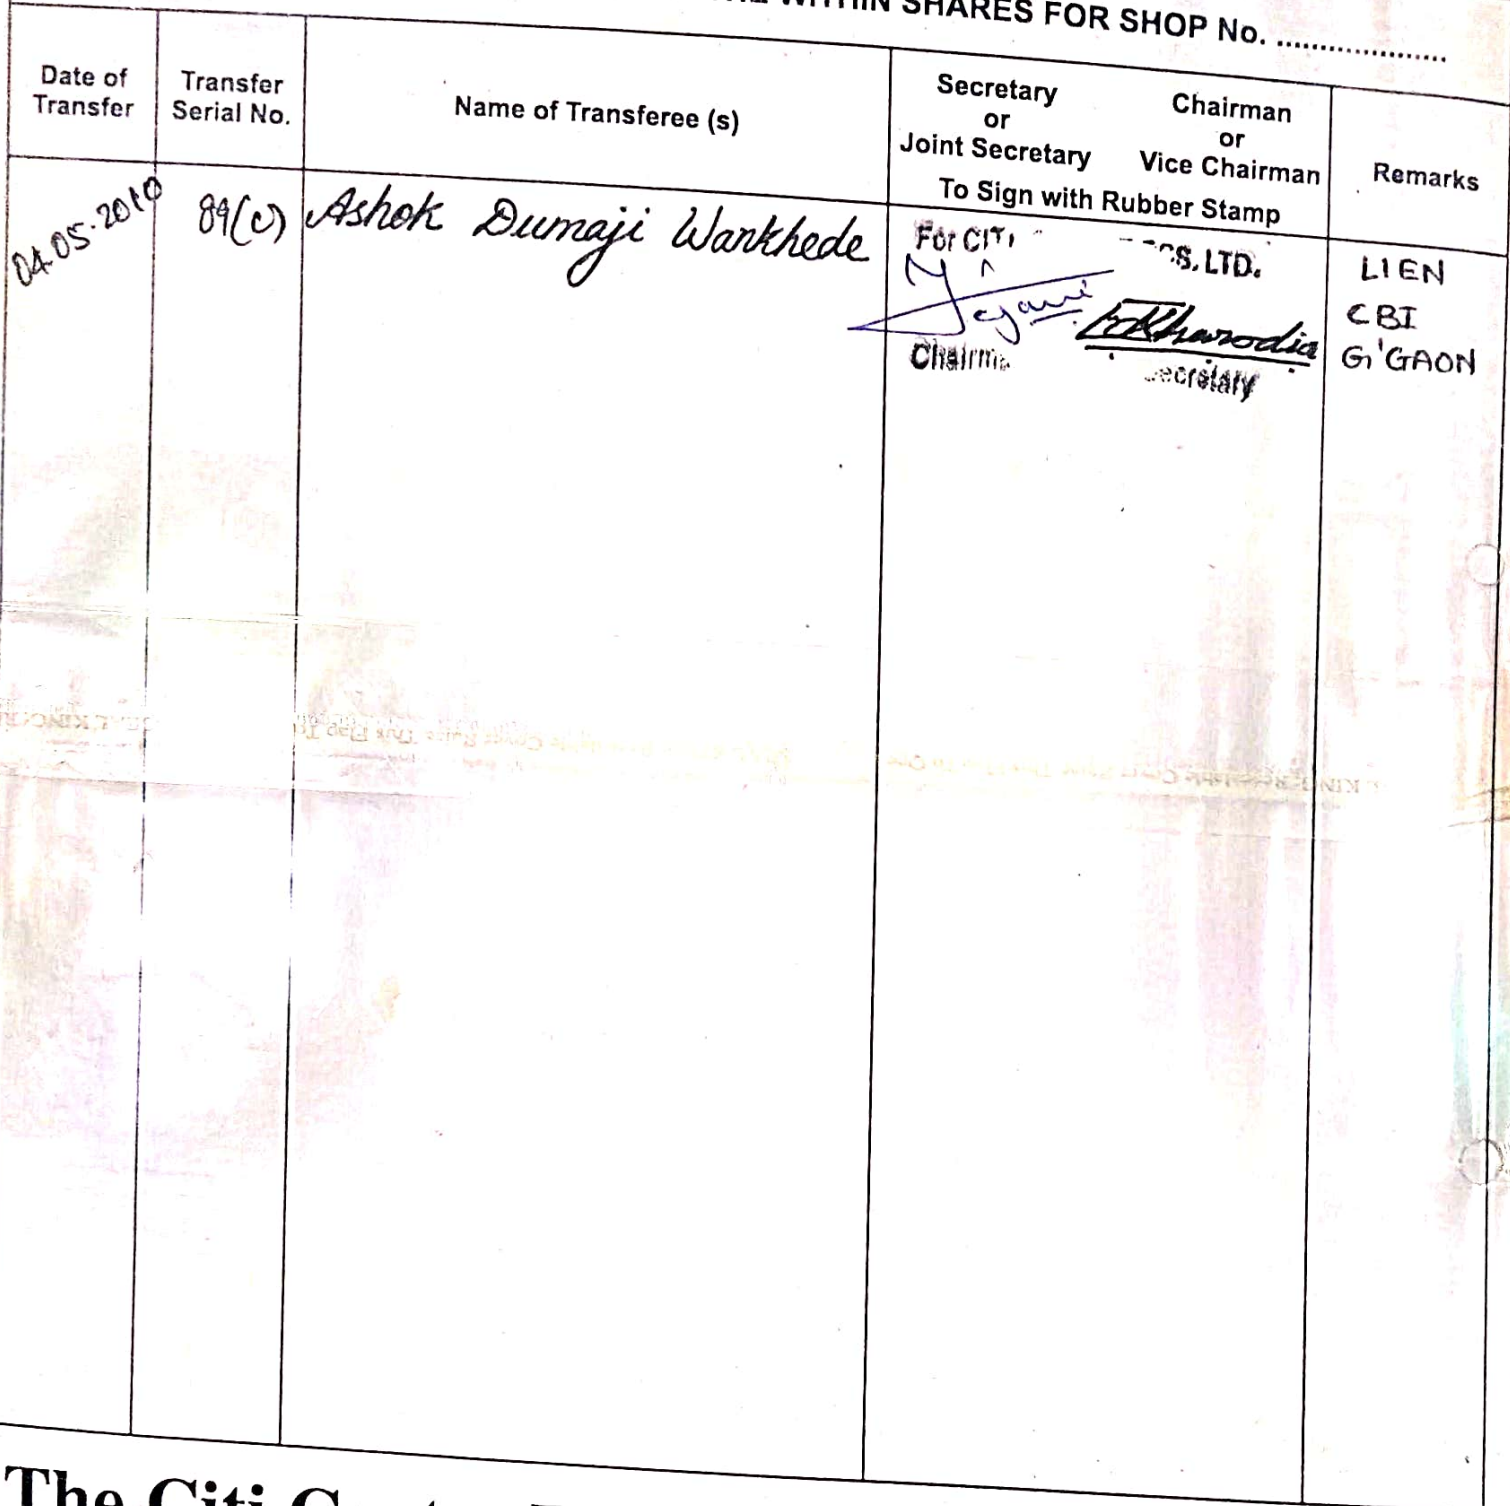 WITHIN SHARES FOR SHOP No. ....................
Date of
Transfer
Transfer
Serial No.
Name of Transferee (s)
Secretary
or
Joint Secretary
Chairman
or
Vice Chairman
To Sign with Rubber Stamp
Remarks
04.05.2010
89(c)
Ashok Dumaji Wankhede
For CITI
CS. LTD.
Kharodia
LIEN
CBI
G'GAON
The Citi